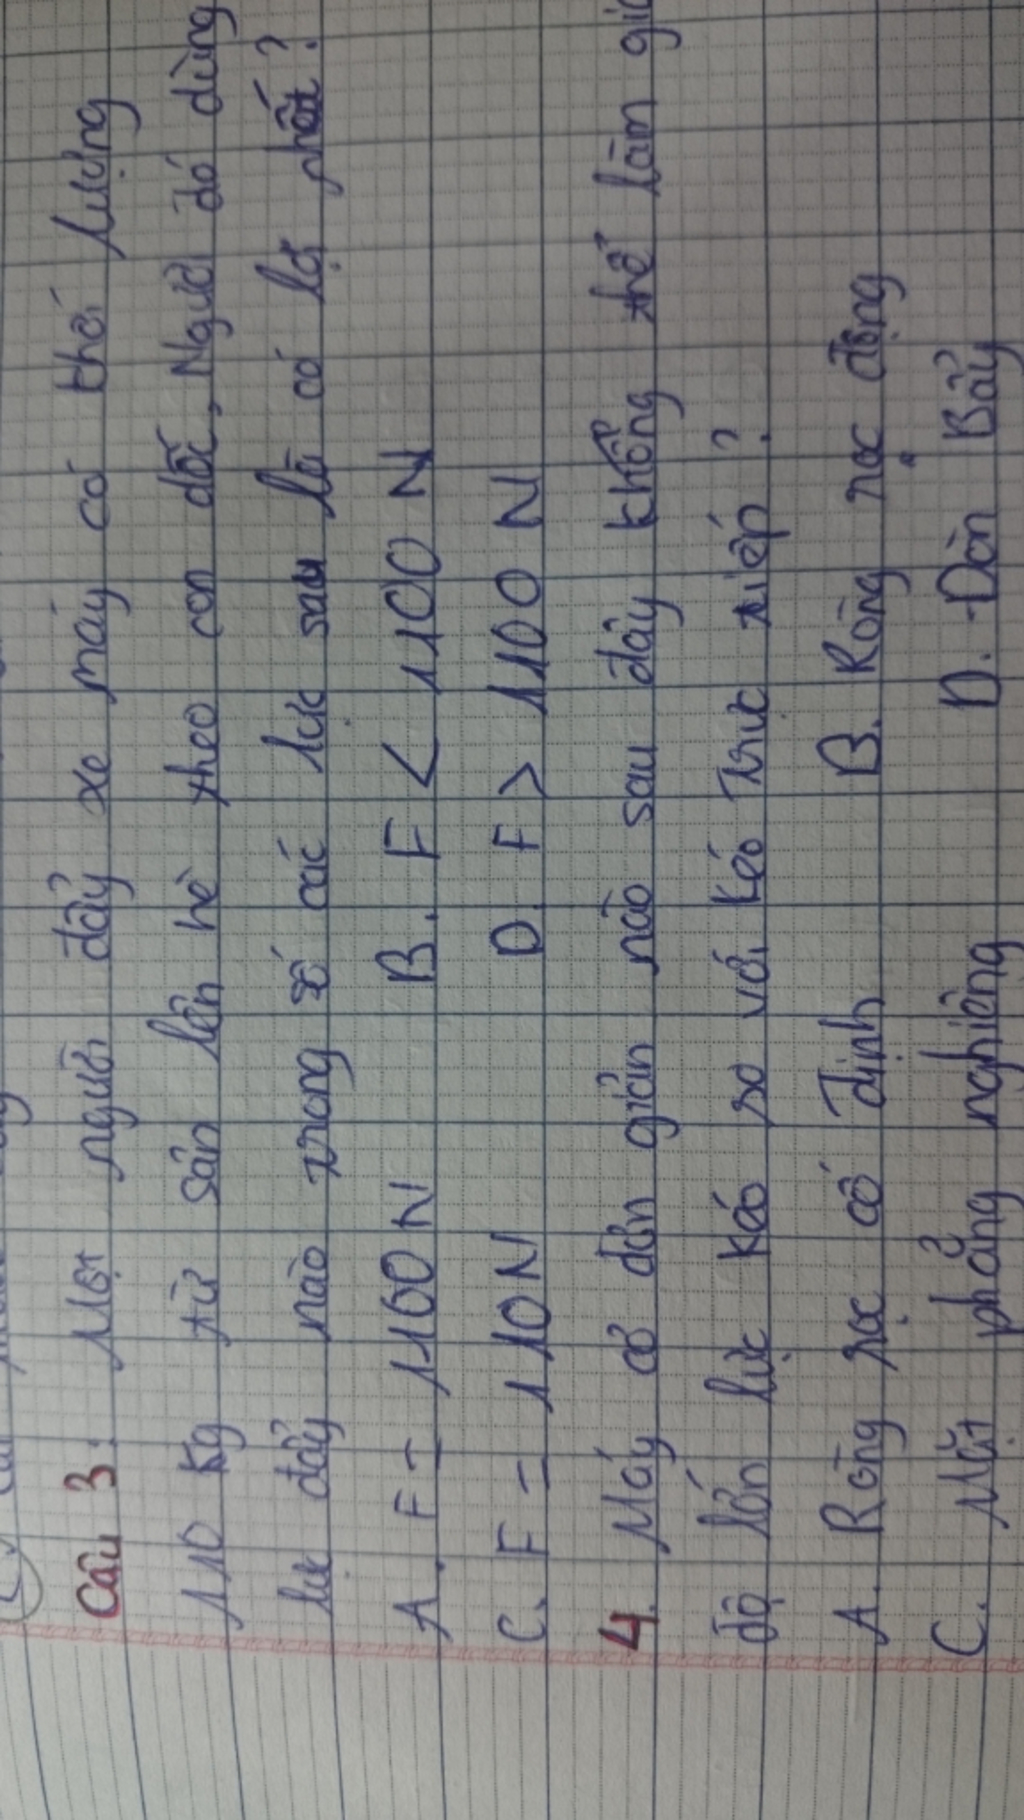 Câu 3: Một người đẩy xe máy có khối lượng
110 kg từ sân lên hè theo con dốc, Người đó dùng
lực đẩy nào trong số các lực sau là có lợi nhất?
A. F = 1100 N B. F < 1100 N
C. F = 110 N D. F > 1100 N
4. Máy cơ đơn giản nào sau đây không thể làm
độ lớn lực kéo so với kéo Trực tiếp?
A. Ròng rọc cố Định B. Ròng rọc động
C. Mặt phẳng nghiêng D. Đòn Bẩy